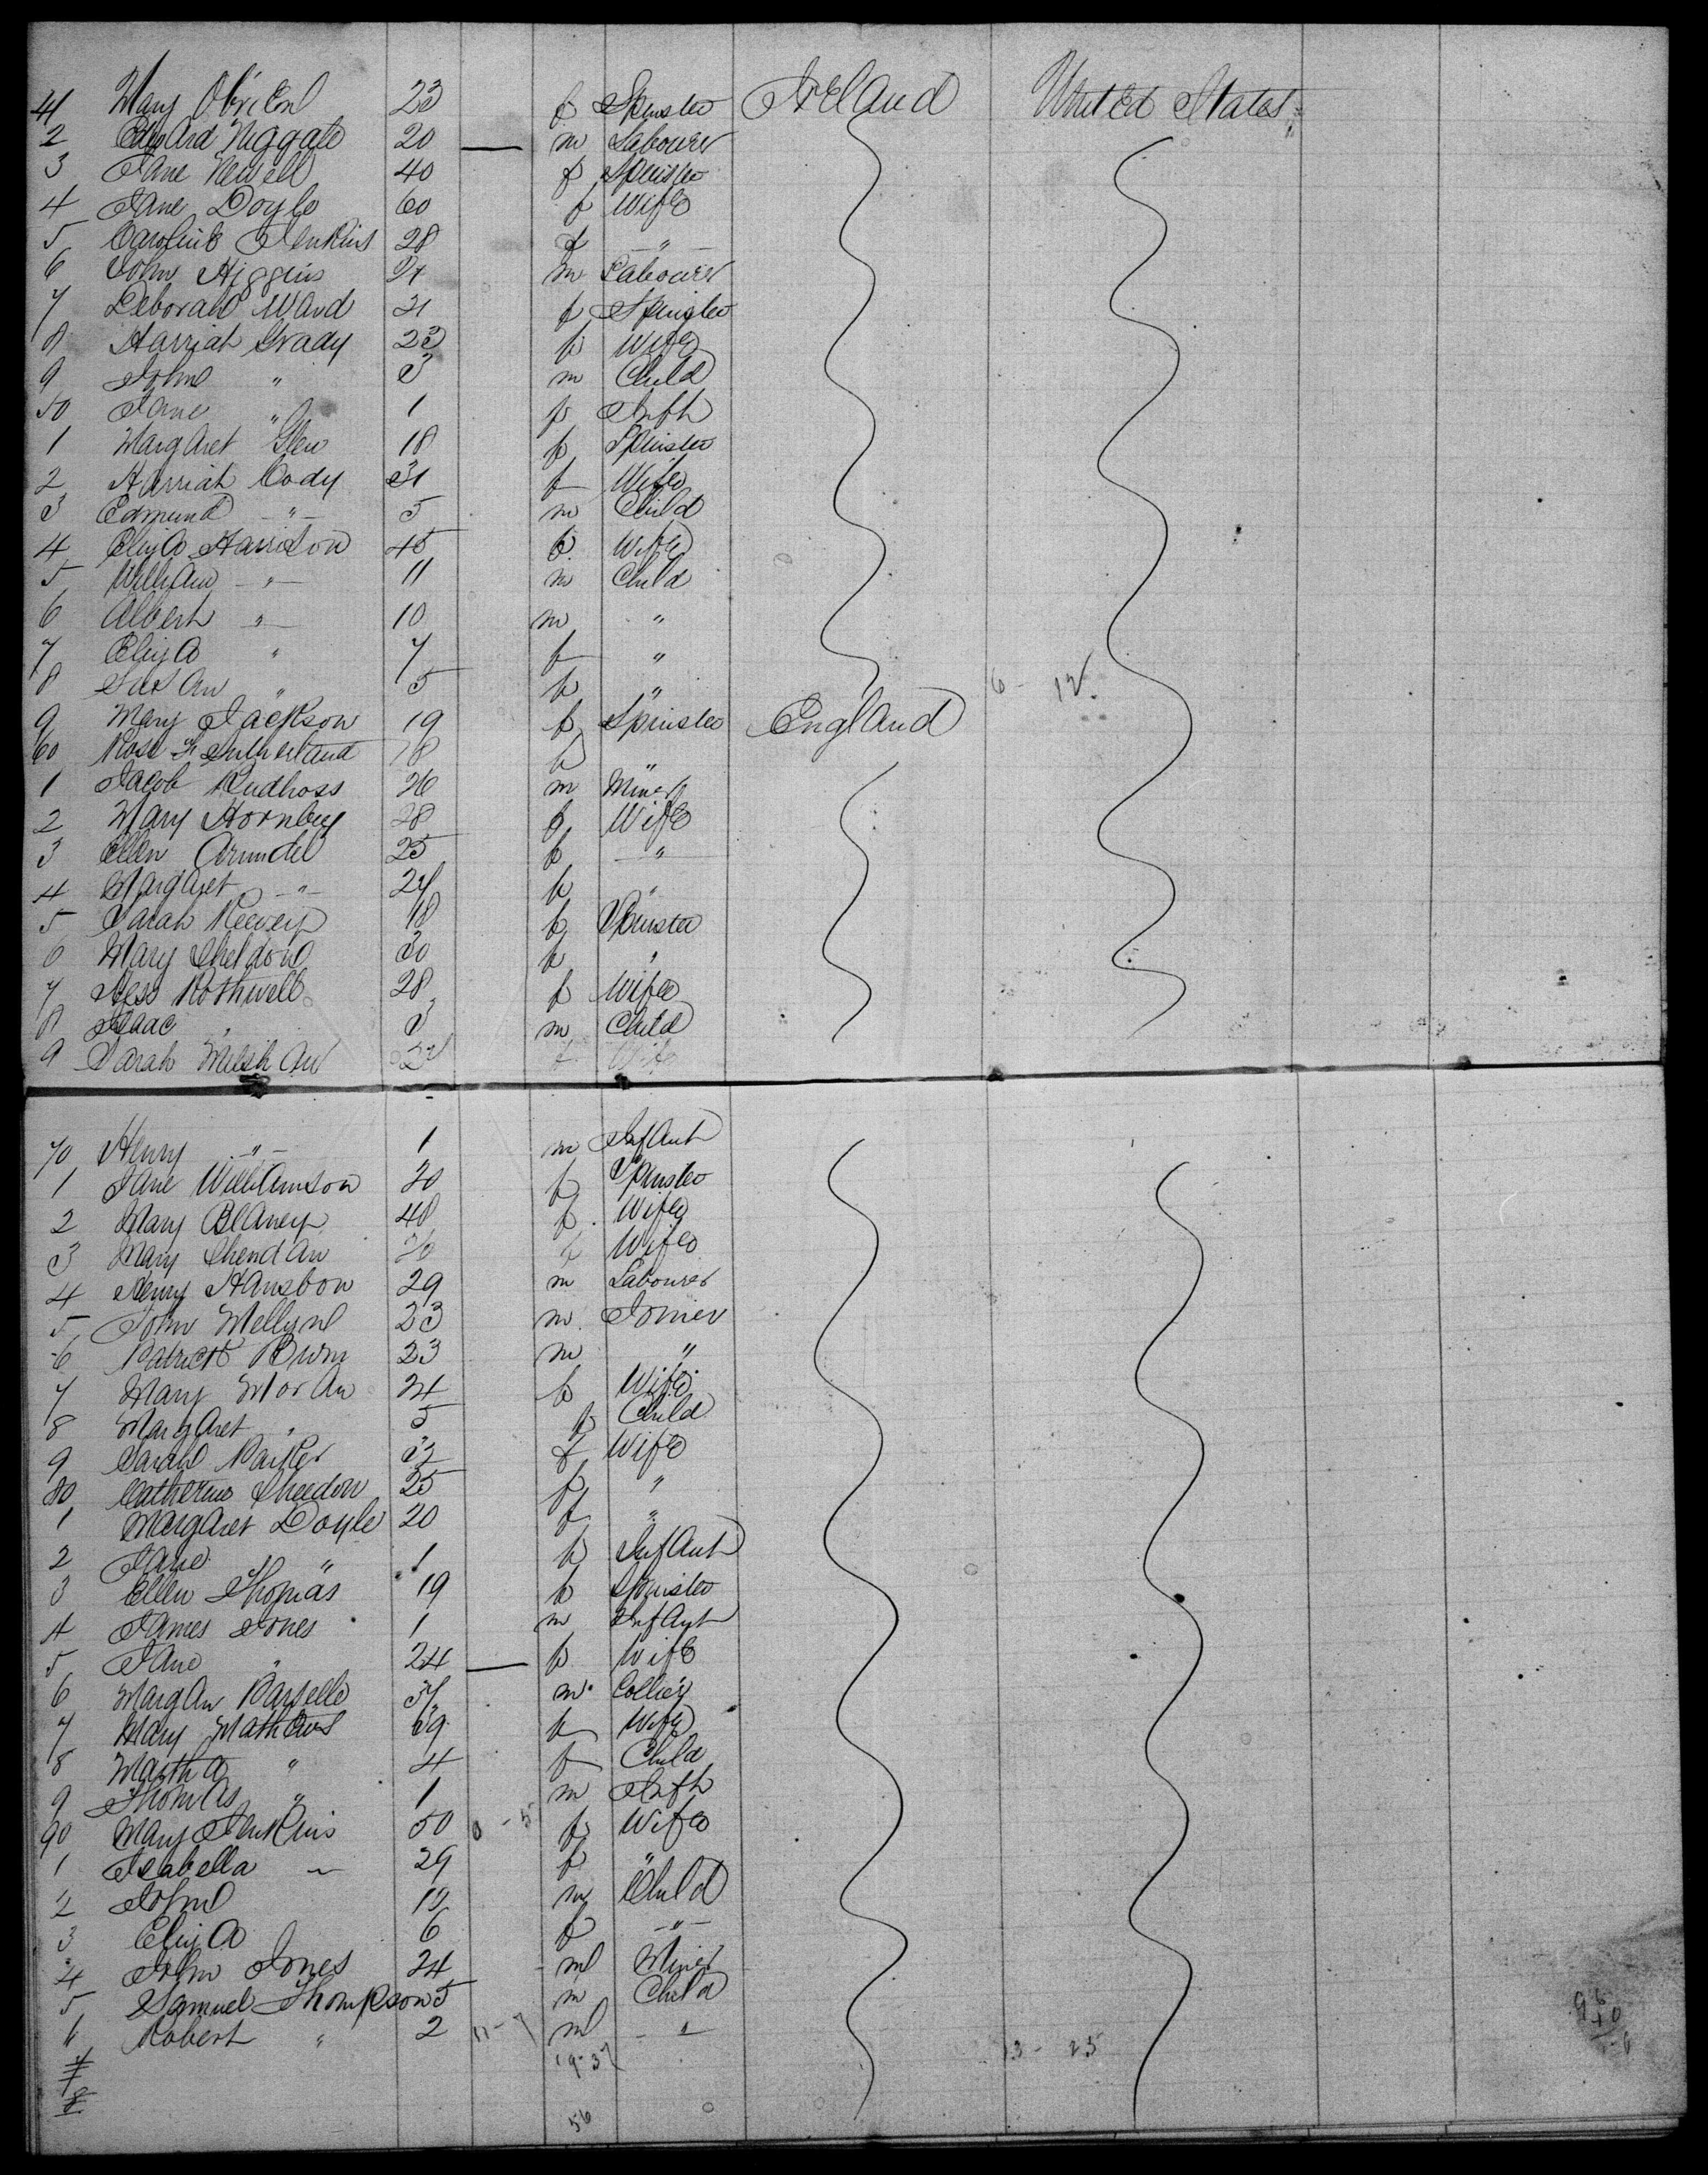 41 Mary O'Brien 23 f Spinster Ireland United States
2 Edward Niggate 20 — m Labourer
3 Jane Newell 40 f Spinster
4 Jane Doyle 60 f Wife
5 Caroline Jenkins 28 f — " —
6 John Higgins 24 m Labourer
7 Deborah Ward 21 f Spinster
8 Harriah Grady 23 f Wife
9 John " 3 m Child
50 Jane " 1 f Inft
1 Margaret Glew 18 f Spinster
2 Harriah Cody 31 f Wife
3 Edmund — " — 5 m Child
4 Eliza Harrison 45 f Wife
5 William — " — 11 m Child
6 Albert — " — 10 m "
7 Eliza " 7 f "
8 Susan " 5 f " 6 - 12
9 Mary Jackson 19 f Spinster England
60 Rose F Sutherland 18 f "
1 Jacob Rudhoss 26 m Miner
2 Mary Hornbey 28 f Wife
3 Ellen Arundel 25 f — " —
4 Margaret — " — 24 f "
5 Sarah 18 f Spinster
6 Mary Sheldon 30 f "
7 Rothwell 28 f Wife
8 Isaac " 3 m Child
9 Sarah f Wife
70 Henry — " — 1 m Infant
1 Jane Williamson 20 f Spinster
2 Mary Blaney 48 f Wife
3 Mary f Wife
4 Henry Hansbow 29 m Labourer
5 John Mellyn 23 m Joiner
6 Patrick Burn 23 m "
7 Mary Moran 24 f Wife
8 Margaret " 5 f Child
9 Sarah Parker 32 f Wife
80 Catherine 25 f "
1 Margaret Doyle 20 f "
2 Jane " 1 f Infant
3 Ellen Thomas 19 f Spinster
4 James Jones 1 m Infant
5 Jane " 24 — f Wife
6 Morgan 37 m Collier
7 Mary Mathews 39 f Wife
8 Martha " 4 f Child
9 Thomas " 1 m Inft
90 Mary Jenkins 50 f Wife
1 Isabella " 29 f "
2 John 12 m Child
3 Eliza 6 f — " —
4 John Jones 24 m Miner
5 Samuel Thompson 5 m Child
6 Robert " 2 11 - 7 m — " —
7 19-37 13 - 25
8
56